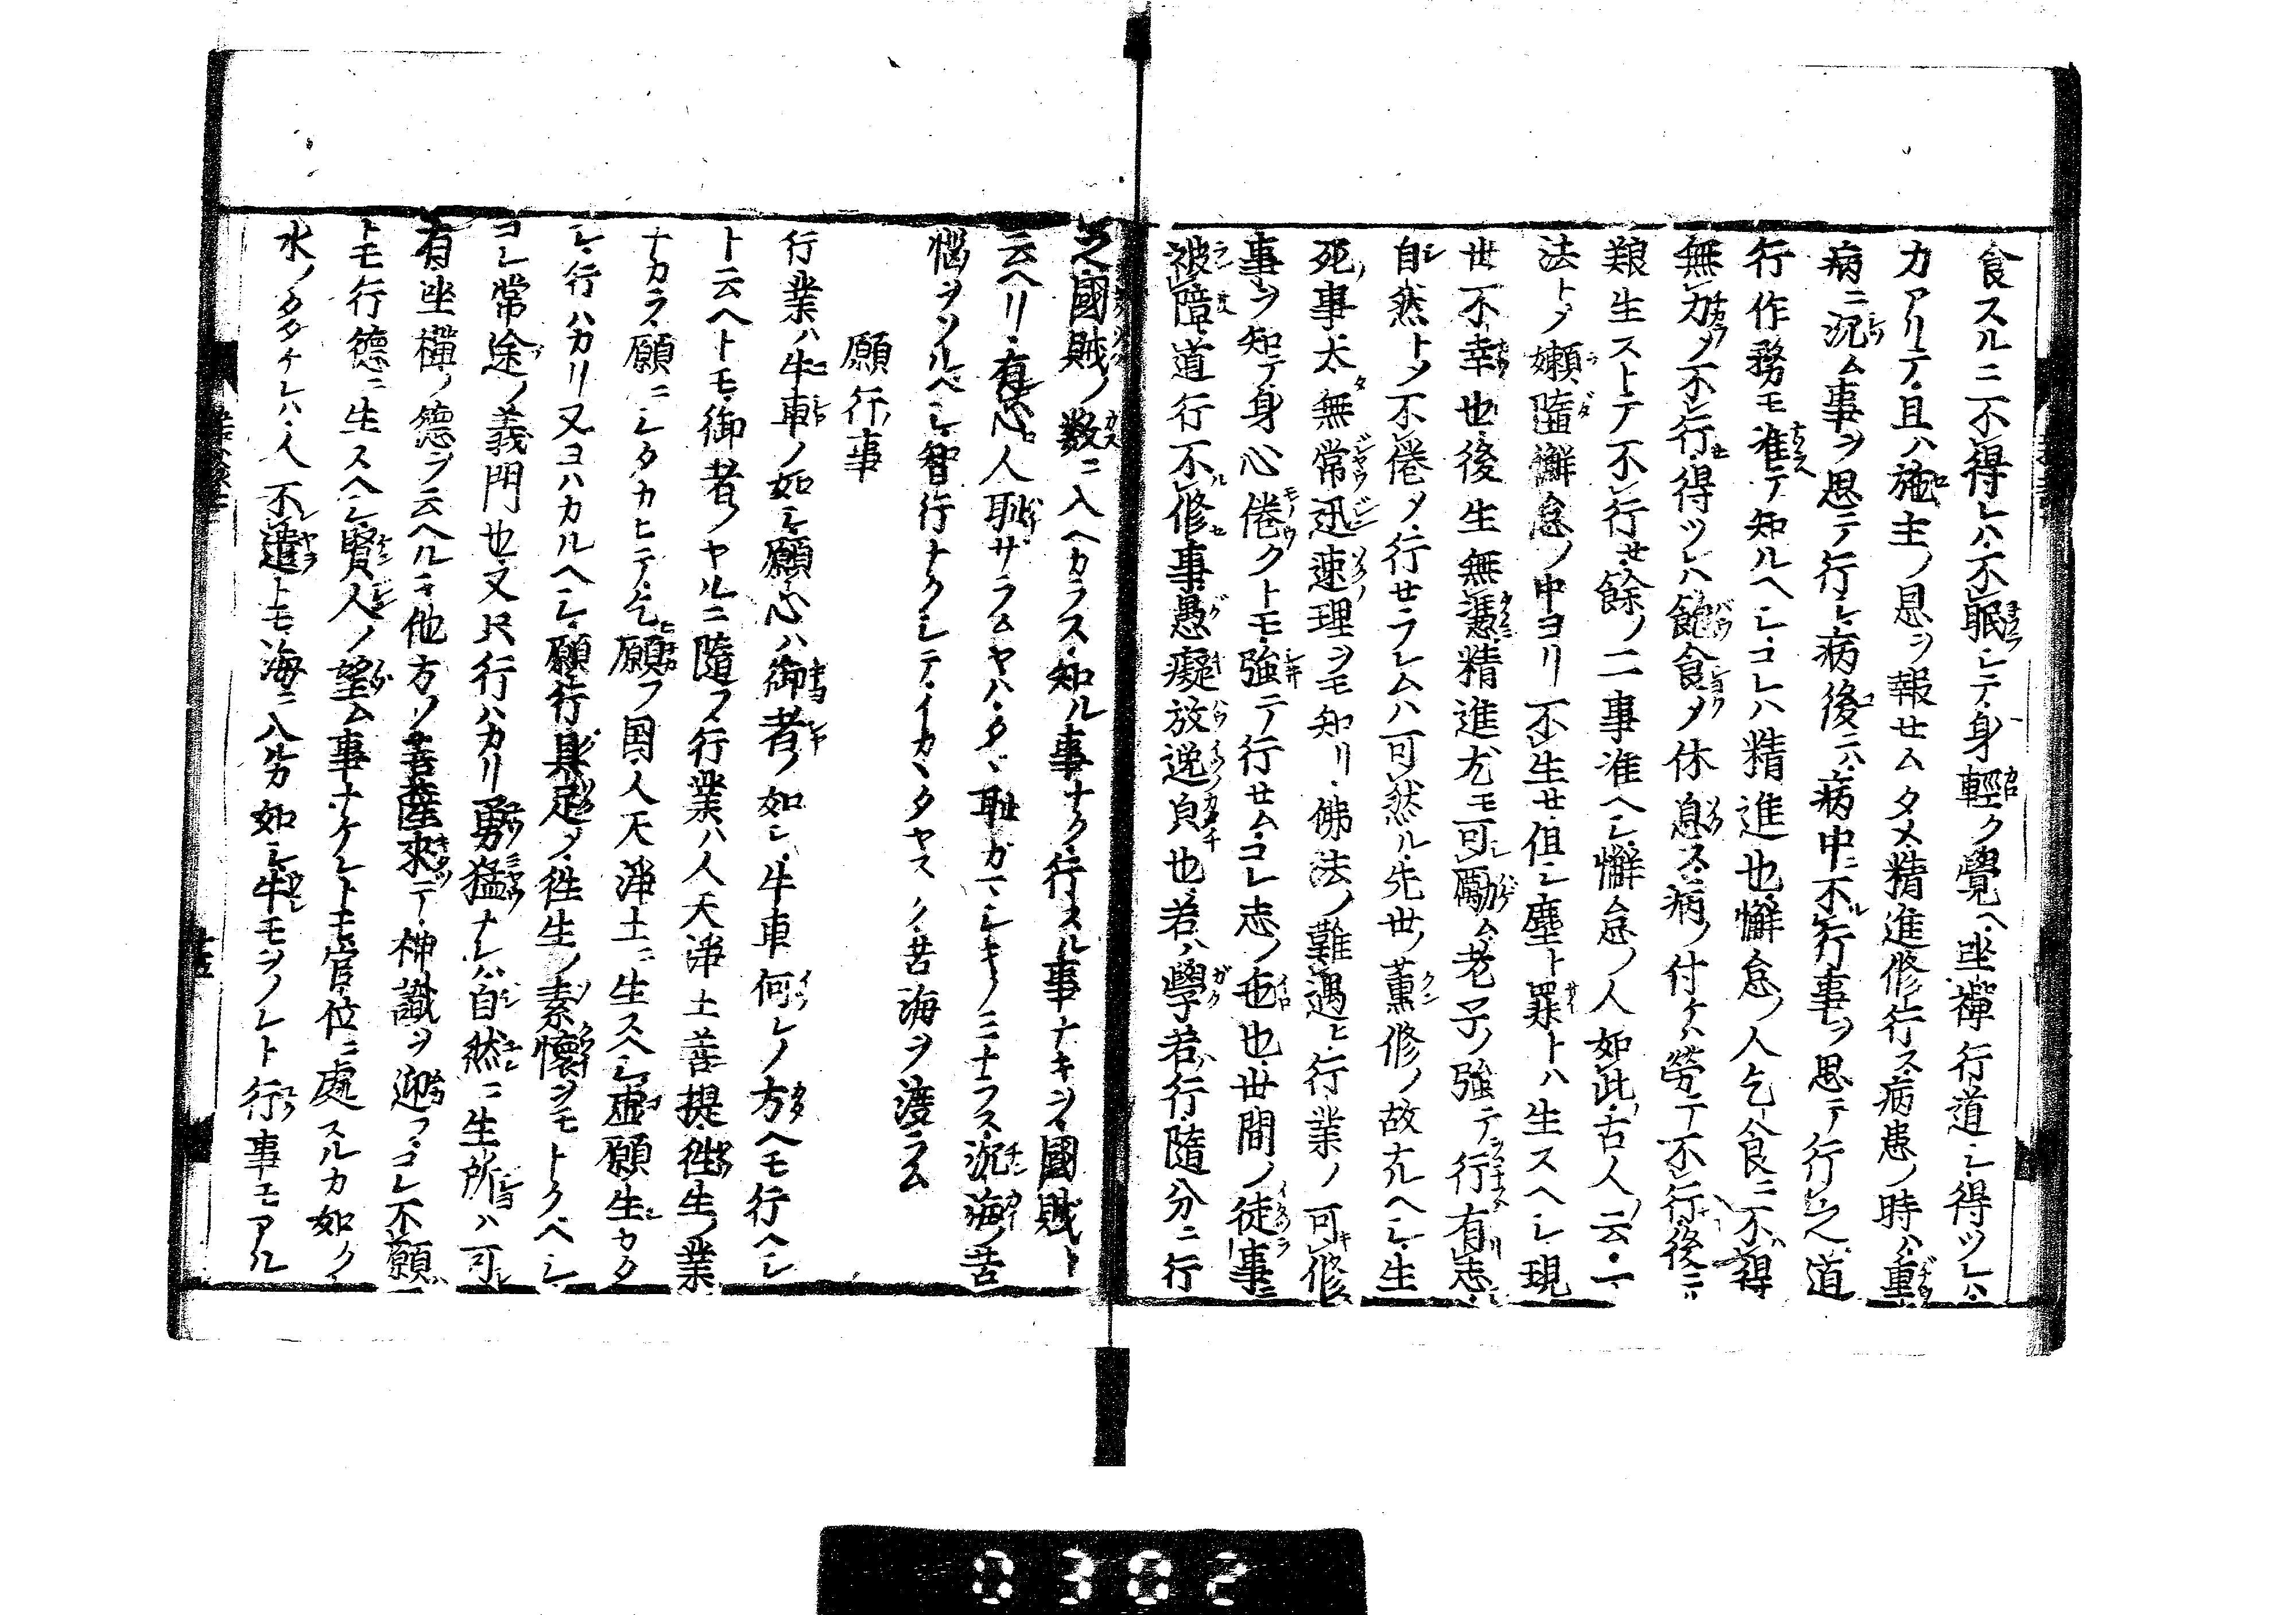 食スルニ不得レハ不眠シテ身輕ク覺ヘ坐禪行道シ得ツレハ
力アリテ且ハ施主ノ恩ヲ報セムタメ精進修行ス病患ノ時ハ重
病ニ沉ム事ヲ思テ行シ病後ニハ病中ニ不行事ヲ思テ行之道
行作務モ准テ知ルヘシコレハ精進也懈怠ノ人乞食ニ不得
無力〆不行得ツレハ飽食〆休息ス病ノ付ケハ勞テ不行後ニハ
生ストテ不行セ餘ノ二事准ヘシ懈怠ノ人如此古人ノ云一
法ト〆嬾隨懈怠ノ中ヨリ不生セ但シ塵ト罪トハ生スヘシ現
世不幸也後生無憑精進尤モ可勵ム老子ノ強テ行有志
自然ト〆不倦〆行セラレムハ可然ル先世ノ薫修ノ故ナルヘシ生
死ノ事太無常迅速ノ理ヲモ知リ佛法ノ難遇ヒ行業ノ可修
事ヲ知テ身心倦クトモ強テ行セムコレ志ノ也也世間ノ徒事ニ
被障道行不修事愚癡放逸ノ㒵也若ハ學若行隨分ニ行
之國賊ノ数ニ入ヘカラス知ル事ナク行スル事ナキヲ國賊ト
云ヘリ有心人耻サラムヤハタヽ耻カマシキノミナラス沉海ノ苦
惱ヲソルヘシ智行ナクシテイカヽタヤスク苦海ヲ渡ラム
願行事
行業ハ牛車ノ如シ願心ハ御者ノ如シ牛車何レノ方ヘモ行ヘシ
ト云ヘトモ御者ノヤルニ隨フ行業ハ人天淨土菩提往生ノ業
ナカラ願ニシタカヒテ乞願フ国人天淨土ニ生スヘシ虚願生カタ
シ行ハカリ又ヨハカルヘシ願行具足〆往生ノ素懷ヲモトクヘシ
コレ常途ノ義門也又只行ハカリ勇猛ナレハ自然ニ生所ハ可
有坐禪ノ德ヲ云ヘルニ他方ノ菩薩來テ神識ヲ迎フコレ不願
トモ行德ニ生スヘシ賢人ノ望ム事ナケレトモ官位ニ處スルカ如ク
水ノタタケレハ人不遣トモ海ニ入ルカ如シ牛モヲノレト行事モアル